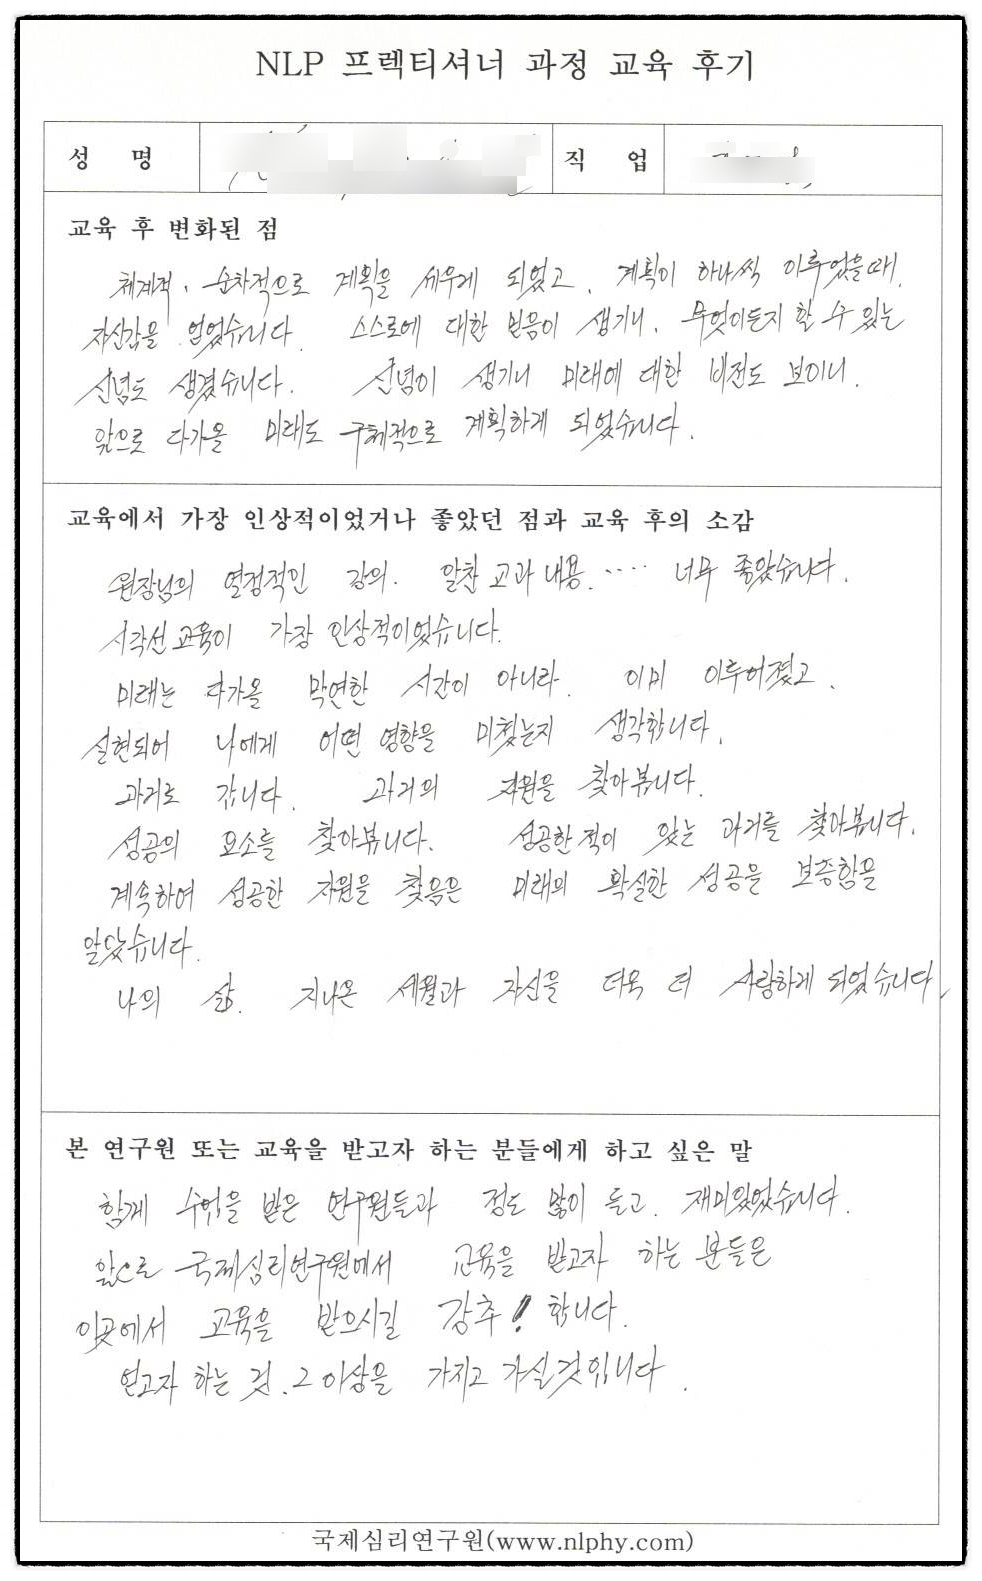 NLP 프렉티셔너 과정 교육 후기
성 명 직 업
교육 후 변화된 점
체계적, 순차적으로 계획을 세우게 되었고, 계획이 하나씩 이루었을때,
자신감을 얻었습니다. 스스로에 대한 믿음이 생기니, 무엇이든지 할 수 있는
신념도 생겼습니다. 신념이 생기니 미래에 대한 비전도 보이니,
앞으로 다가올 미래도 구체적으로 계획하게 되었습니다.
교육에서 가장 인상적이었거나 좋았던 점과 교육 후의 소감
원장님의 열정적인 강의. 알찬 교과 내용. ‥‥ 너무 좋았습니다.
시각선 교육이 가장 인상적이었습니다.
미래는 다가올 막연한 시간이 아니라. 이미 이루어졌고,
실현되어 나에게 어떤 영향을 미쳤는지 생각합니다.
과거로 갑니다. 과거의 자원을 찾아봅니다.
성공의 요소를 찾아봅니다. 성공한적이 있는 과거를 찾아봅니다.
계속하여 성공한 자원을 찾음은 미래의 확실한 성공을 보증함을
알았습니다.
나의 삶. 지나온 세월과 자신을 더욱 더 사랑하게 되었습니다.
본 연구원 또는 교육을 받고자 하는 분들에게 하고 싶은 말
함께 수업을 받은 연구원들과 정도 많이 들고, 재미있었습니다.
앞으로 국제심리연구원에서 교육을 받고자 하는 분들은
이곳에서 교육을 받으시길 강추! 합니다.
얻고자 하는 것, 그 이상을 가지고 가실것입니다.
국제심리연구원(www.nlphy.com)